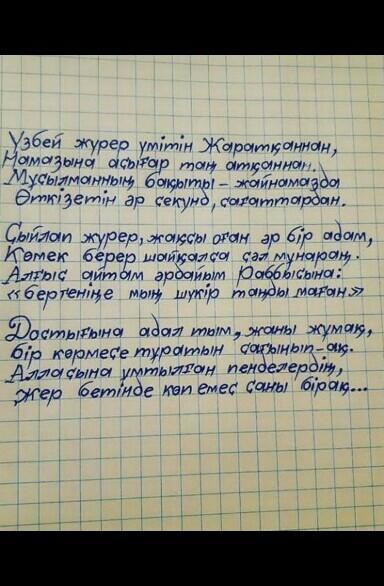 Үзбей жүрер үмітін Жаратқаннан,
Намазына асығар таң атқаннан.
Мұсылманның бақыты – жайнамазда
Өткізетін әр секунд, сағаттардан.
Сыйлап жүрер, жақсы оған әр бір адам,
Көмек берер шайқалса сәл мұнараң.
Алғыс айтам әрдайым Раббысына:
«бергеніңе мың шүкір таңды маған.»
Достығына адал тым, жаны жұмақ,
бір көрмесе тұратын сағынып-ақ.
Алласына ұмтылған пенделердің,
Жер бетінде көп емес саны бірақ...